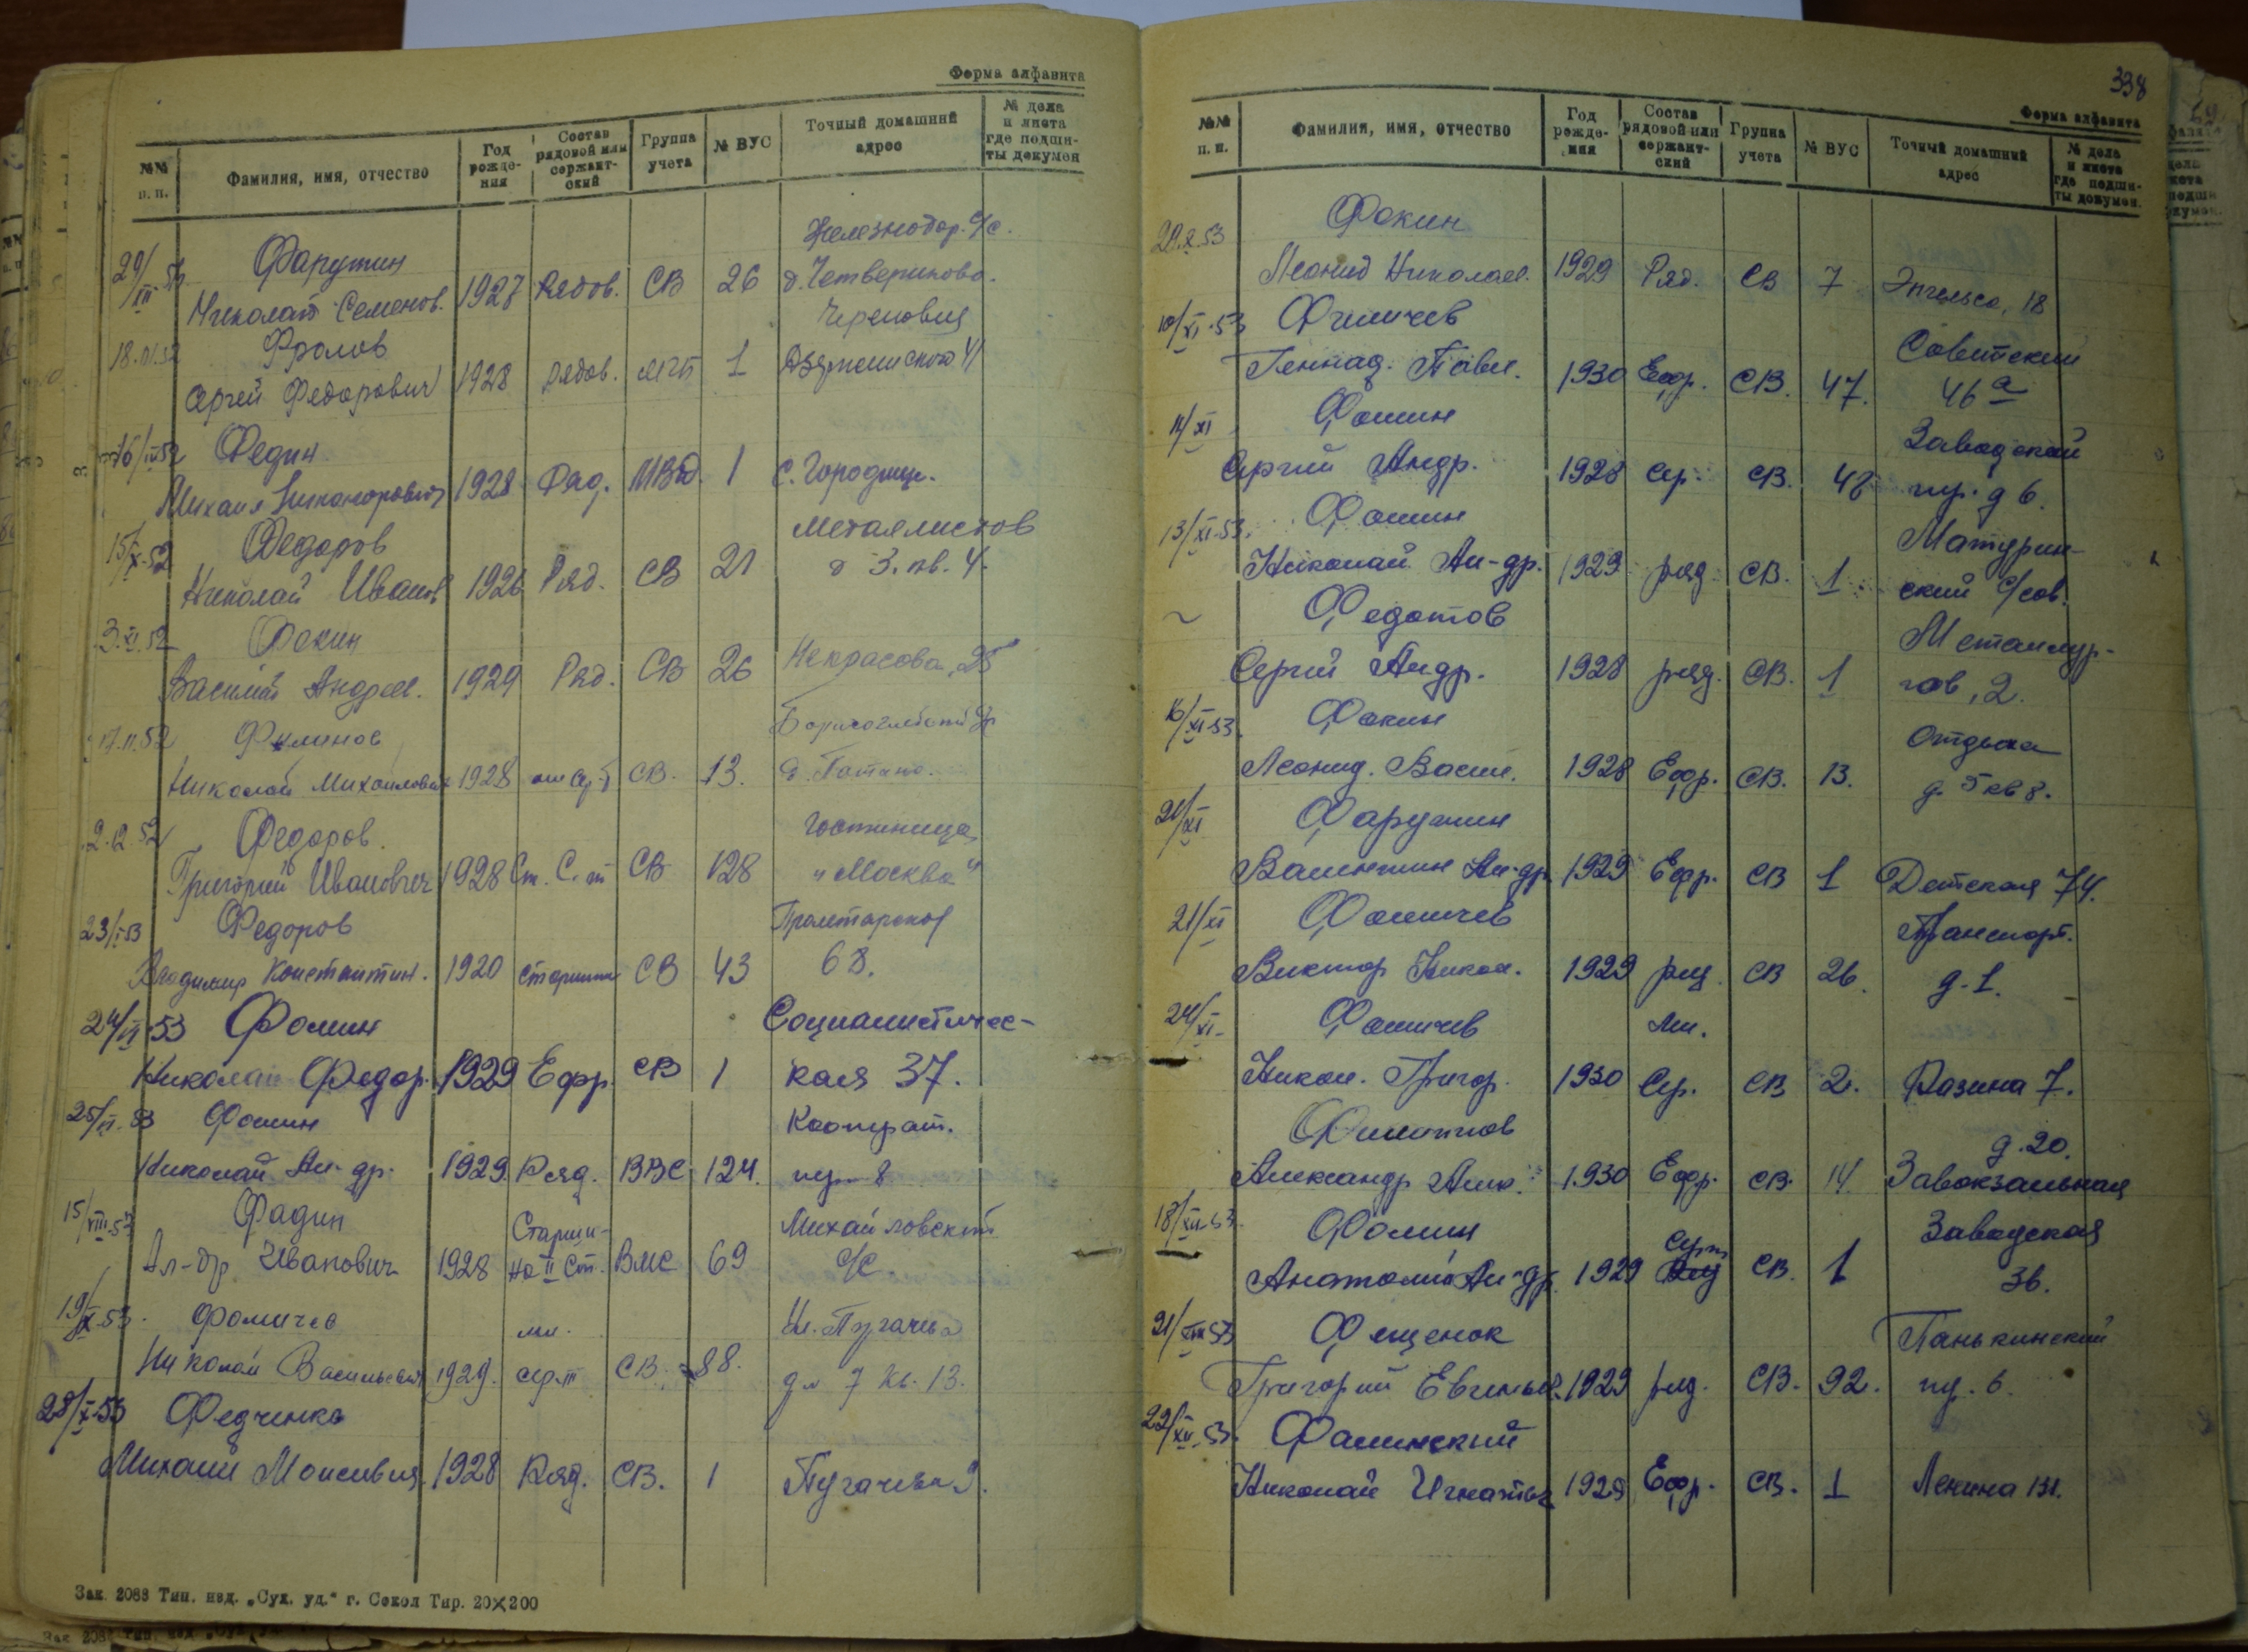 Форма алфавита
№№ п. п. Фамилия, имя, отчество Год рождения Состав рядовой или сержантский Группа учета № ВУС Точный домашний адрес № дела и листа где подшиты докумен
Железнодор. с/с.
29/XII Фарутин
Николай Семенов. 1927 Рядов. СВ 26 д. Четвериково.
Череповец
18. Фролов
Сергей Федорович 1928 рядов. 1 Дзержинского 41
16/ 52 Федин
Михаил Никанорович 1928 Ряд. МВД. 1 с. Городище.
15/X-52 Федоров Металлистов
Николай Иванов 1926 Ряд. СВ 21 д 3. кв. 4.
3.XI.52 Фокин
Василий Андреев. 1929 Ряд. СВ 26 Некрасова, 25
17.11.52 Филинов
Николай Михайлович 1928 СВ. 13. д.
2.12.52 Федоров. Гостиница
Григорий Иванович 1928 Ст. С-т СВ 128 "Москва"
23/ 53 Федоров Пролетарская
Владимир Константин. 1920 старшина СВ 43 68.
24/ 53 Фомин Социалистичес-
Николай Федор. 1929 Ефр. СВ 1 кая 37.
25/ 53 Фомин Кооперат.
Николай Ал-др. 1929. Ряд. ВВС 124. пер 8
15/VIII-53 Фадин Старши- Михайловский
Ал-др Иванович 1928 на II ст. ВМС 69 с/с.
19/X-53. Фомичев мл. Ул. Пугачева
Николай Васильевич 1929. сер-т СВ. 88. д № 7 кв. 13.
28/X-53 Федченко
Михаил Моисеевич. 1928 Ряд. СВ. 1 Пугачева 9.
Зак. 2088 Тип. изд. „Сух. уд.“ г. Сокол Тир. 20×200
338
Форма алфавита
№№ п. п. Фамилия, имя, отчество Год рождения Состав рядовой или сержантский Группа учета № ВУС Точный домашний адрес № дела и листа где подшиты докумен.
29.X.53 Фокин
Леонид Николаев. 1929 Ряд. СВ 7 Энгельса, 18
10/XI-53 Фомичев Советский
Геннад. Павл. 1930 Ефр. СВ. 47. 46 а
14/XI Фомин Заводской
Сергей Андр. 1928 Сер. СВ. 48 пер. д 6.
13/XI-53. Фомин Матурин-
Николай Ал-др. 1929 ряд СВ. 1 ский с/сов.
~ Федотов Металлур-
Сергей Андр. 1928 ряд. СВ. 1 гов, 2.
16/XI-53. Фокин Отдыха
Леонид. Васил. 1928 Ефр. СВ. 13. д. 5 кв 8.
21/XI Фарутин
Валентин Ал-др. 1929 Ефр. СВ 1 Детская 74.
21/XI Фомичев Транспорт.
Виктор Никол. 1929 ряд. СВ 26. д-1.
24/XI- Фомичев Мл.
Никол. Григор. 1930 Сер. СВ 2. Разина 7.
Филиппов д. 20.
Александр Алек. 1930 Ефр. СВ. 14. Завокзальная
18/XII-53. Фомин Серж Заводская
Анатолий Ал-др. 1929 СВ. 1 36.
21/XII 53 Фещенок Панькинский
Григорий Евгеньев. 1929 ряд. СВ. 92. пер. 6.
22/XII.53. Фалинский
Николай Игнатьев. 1929 Ефр. СВ. 1 Ленина 131.